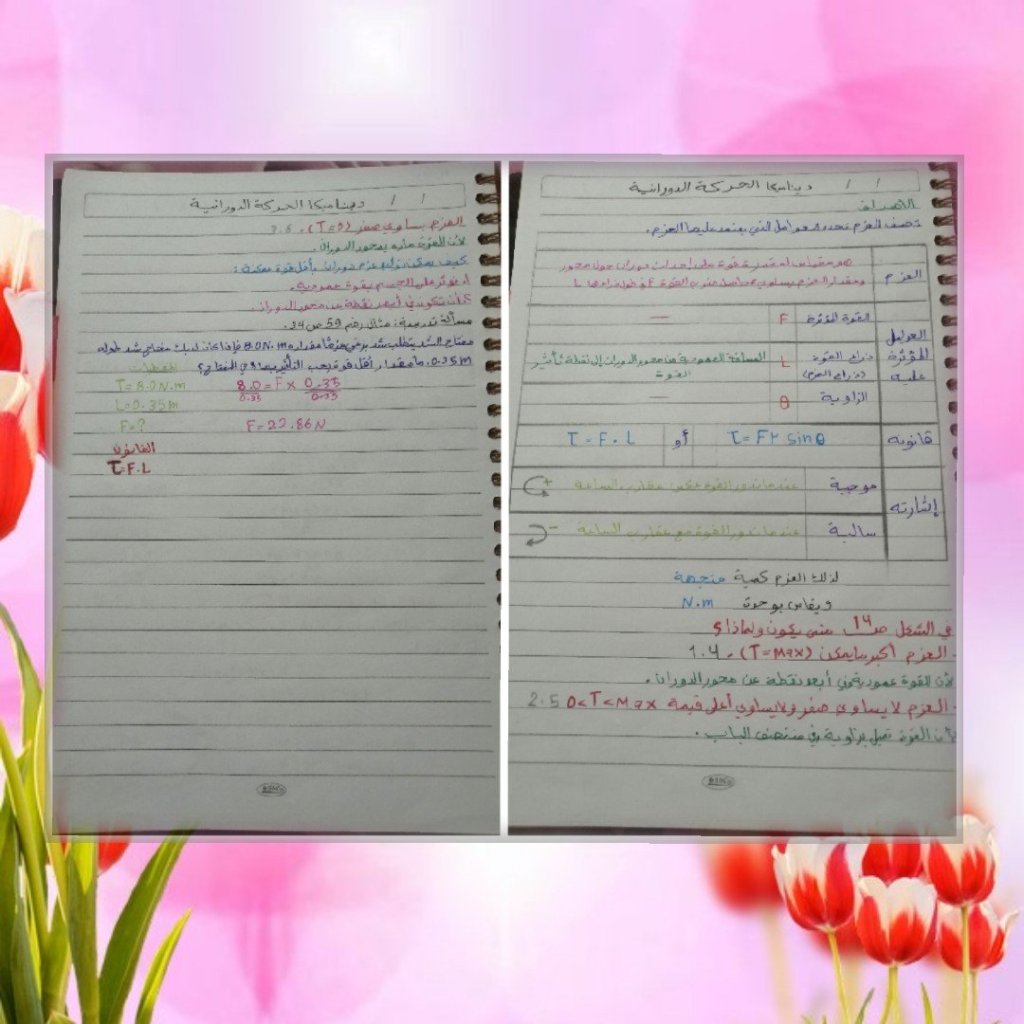 ديناميكا الحركة الدورانية
الأهداف
تصف العزم تحدد العوامل التي يعتمد عليها العزم.
العزم
هو مقياس لمقدرة القوة على إحداث دوران حول محور
ومقدار العزم يساوي حاصل ضرب القوة F في طول ذراعها L
العوامل المؤثرة عليه
القوة المؤثرة F —
ذراع القوة (ذراع العزم) L المسافة العمودية من محور الدوران إلى نقطة تأثير القوة
الزاوية θ —
قانونه τ = Fr sinθ أو τ = F . L
إشارته
موجبة عندما تدور القوة عكس عقارب الساعة +
سالبة عندما تدور القوة مع عقارب الساعة -
لذلك العزم كمية متجهة
ويقاس بوحدة N.m
في الشكل ص14 متى يكون ولماذا؟
- العزم أكبر ما يمكن (T=Max). 1.4
لأن القوة عمودية في أبعد نقطة عن محور الدوران.
- العزم لا يساوي صفر ولا يساوي أعلى قيمة 0<T<Max 2.5
لأن القوة تميل بزاوية في منتصف الباب.
ديناميكا الحركة الدورانية
العزم يساوي صفر (T=0). 3.6
لأن القوة مارة بمحور الدوران.
كيف يمكن توليد عزم دوران بأقل قوة ممكنة:
1. نؤثر على الجسم بقوة عمودية.
2. أن تكون في أبعد نقطة عن محور الدوران.
مسألة تدريبية: مثال رقم 59 ص 24.
مفتاح الشد يتطلب شد برغي عزمًا مقداره 8.0N.m فإذا كان لديك مفتاح شد طوله
0.35m. ما مقدار أقل قوة يجب التأثير بها في المفتاح؟
المعطيات
T = 8.0N.m
L = 0.35m
F = ?
القانون
τ = F.L
8.0 = F × 0.35
0.35 0.35
F = 22.86N